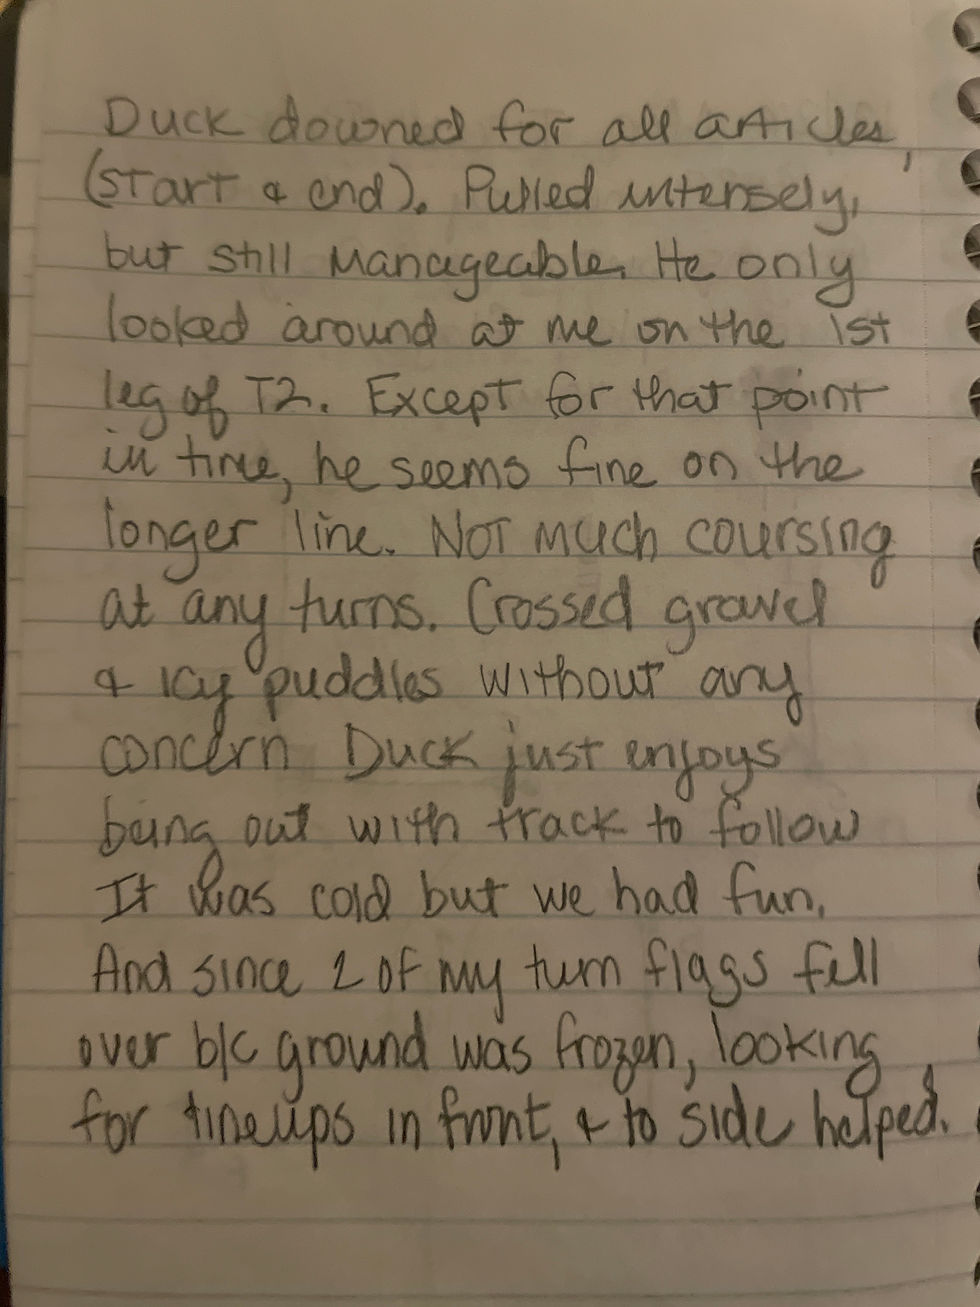 Duck downed for all articles,
(start & end). Pulled intensely,
but still manageable. He only
looked around at me on the 1st
leg of T2. Except for that point
in time, he seems fine on the
longer line. Not much coursing
at any turns. Crossed gravel
& icy puddles without any
concern Duck just enjoys
being out with track to follow
It was cold but we had fun.
And since 2 of my turn flags fell
over b/c ground was frozen, looking
for lineups in front, & to side helped.